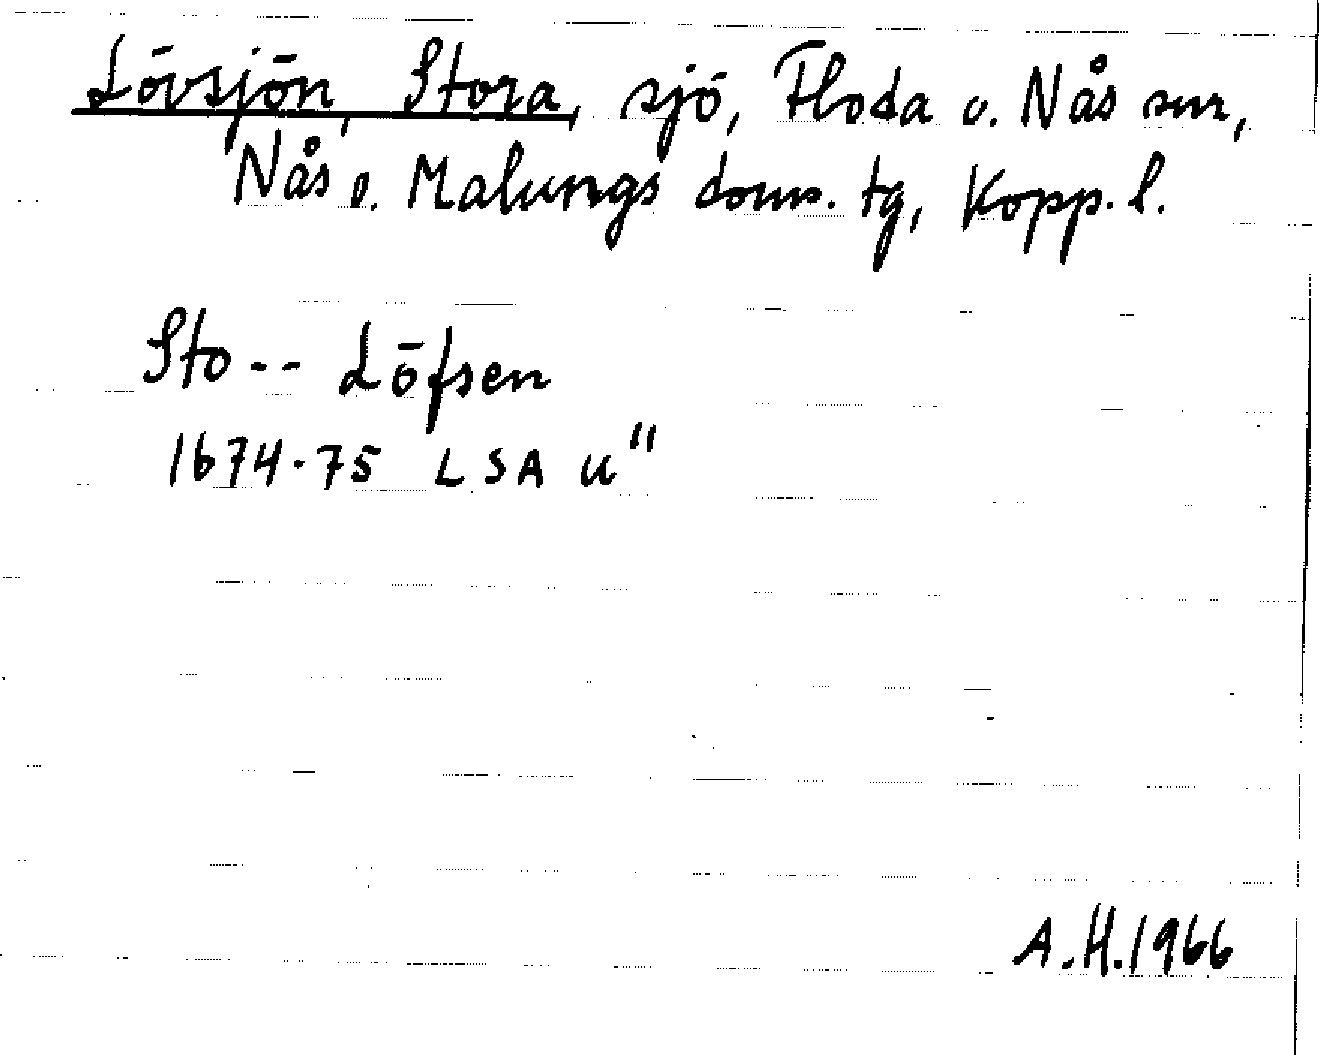 Lövsjön, Stora, sjö, Floda o. Nås snr,
Nås o. Malungs doms. tg, Kopp. l.
Sto -- Löfsen
1674-75 LSA u"
A.H. 1966